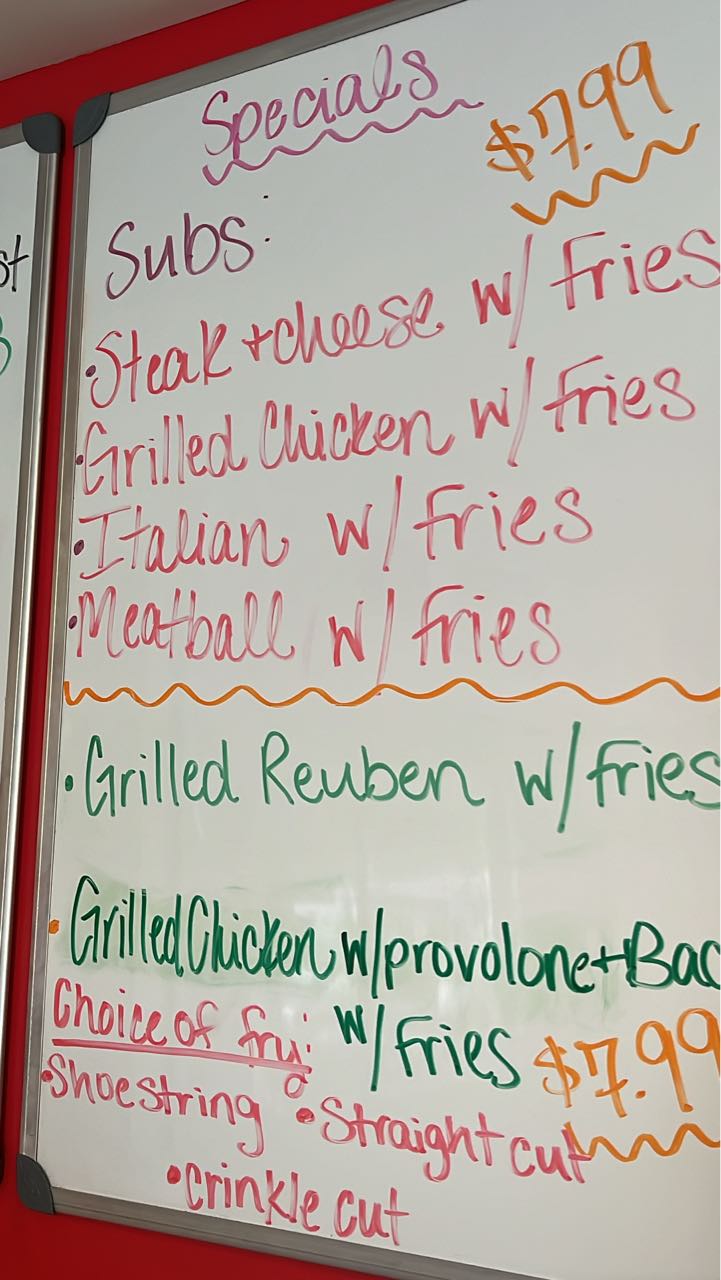 Specials
$7.99
Subs:
•Steak + cheese w/ Fries
•Grilled Chicken w/ Fries
•Italian w/ Fries
•Meatball w/ Fries
•Grilled Reuben w/ Fries
•Grilled Chicken w/ provolone + Bac
w/ Fries $7.99
Choice of fry:
•Shoestring •Straight cut
•Crinkle cut
st